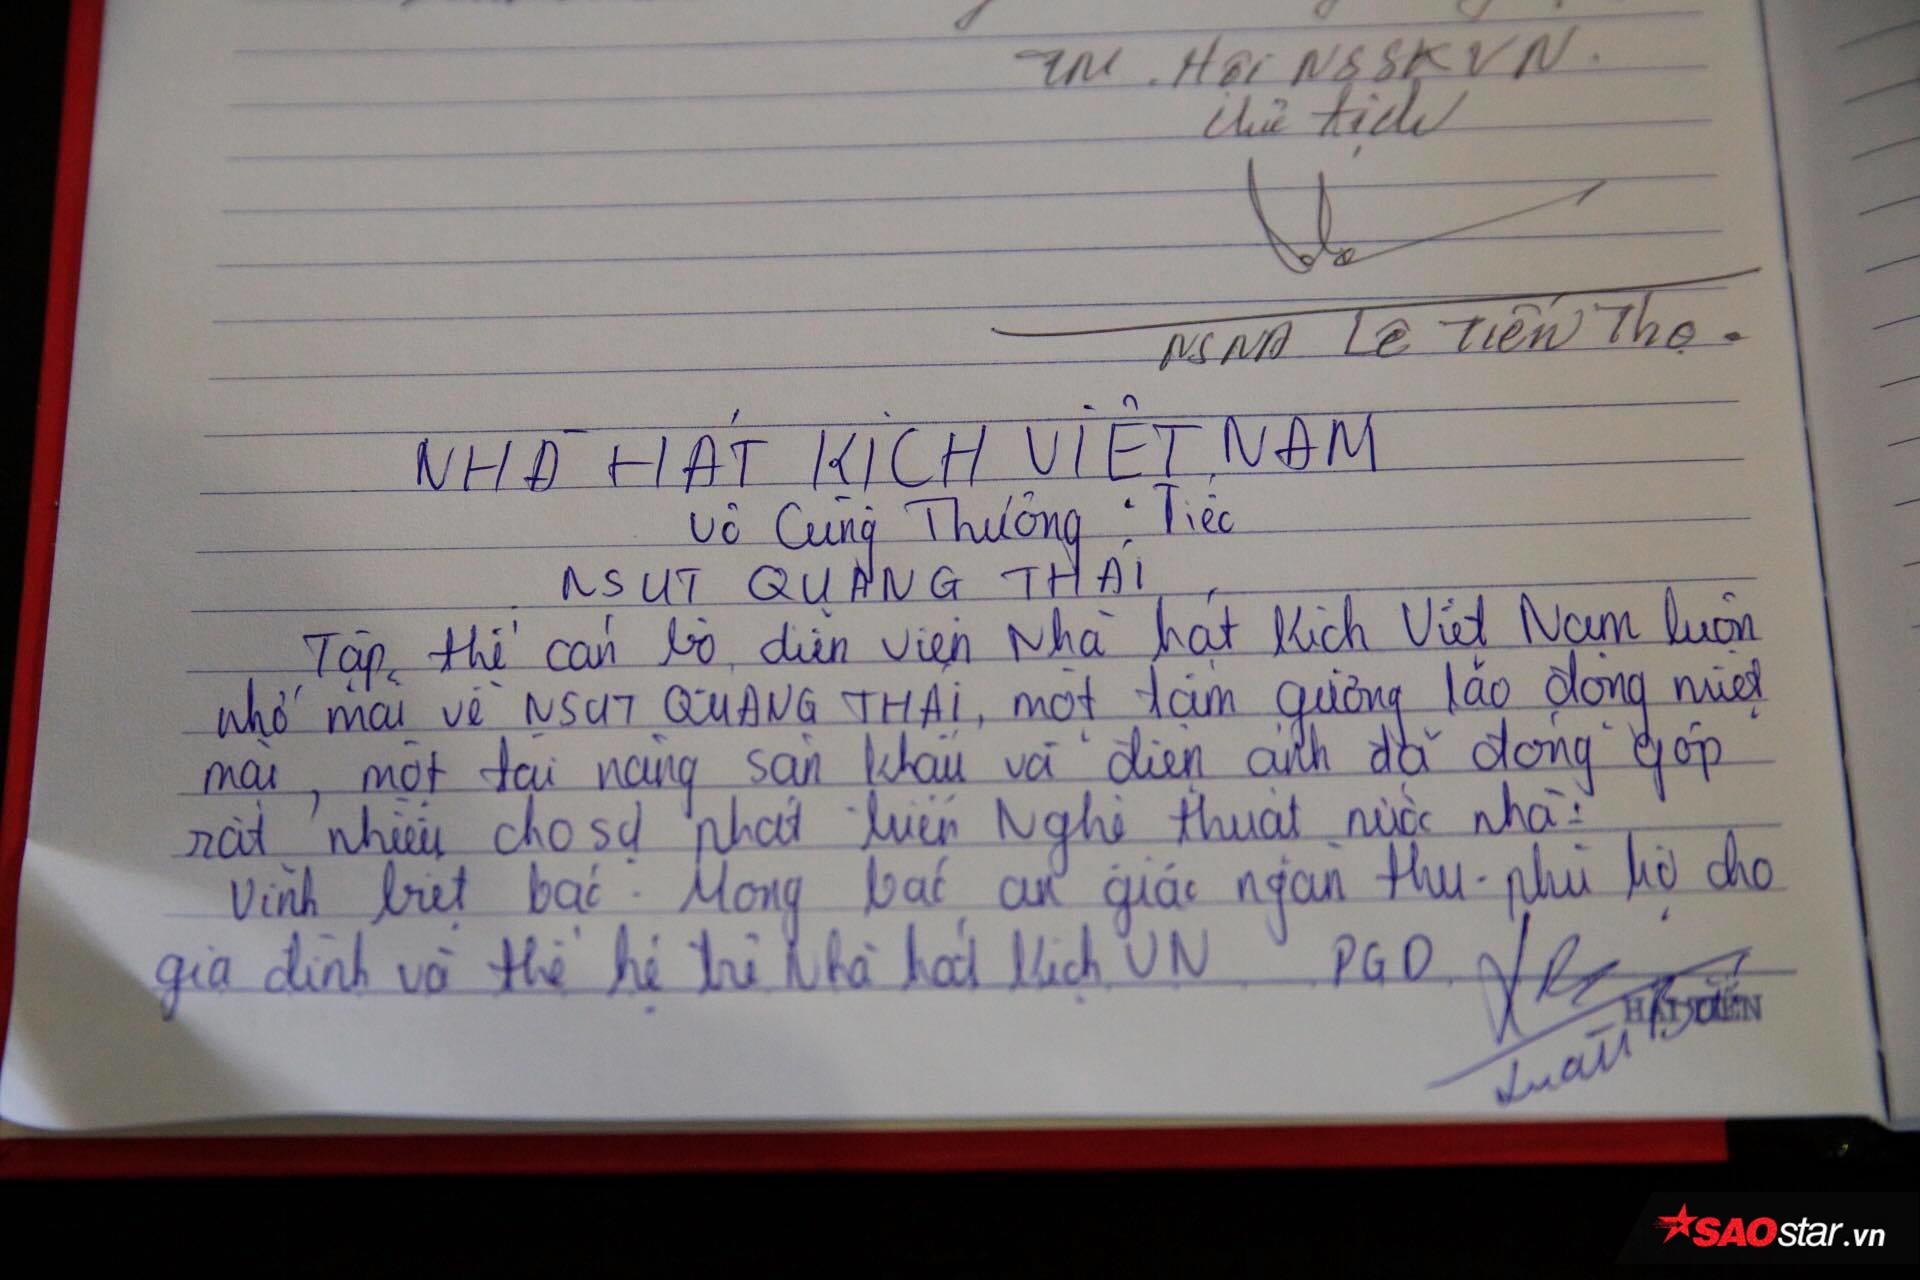 TM. Hội NSSKVN.
Chủ tịch
NSND Lê Tiến Thọ.
NHÀ HÁT KỊCH VIỆT NAM
Vô Cùng Thương Tiếc
NSUT QUANG THÁI
Tập thể cán bộ diễn viên Nhà hát Kịch Việt Nam luôn
nhớ mãi về NSUT QUANG THÁI, một tấm gương lao động miệt
mài, một tài năng sân khấu và điện ảnh đã đóng góp
rất nhiều cho sự phát triển Nghệ thuật nước nhà.
Vĩnh biệt bác. Mong bác an giấc ngàn thu. phù hộ cho
gia đình và thế hệ trẻ Nhà hát Kịch VN PGD
Xuân Bắc
SAOstar.vn